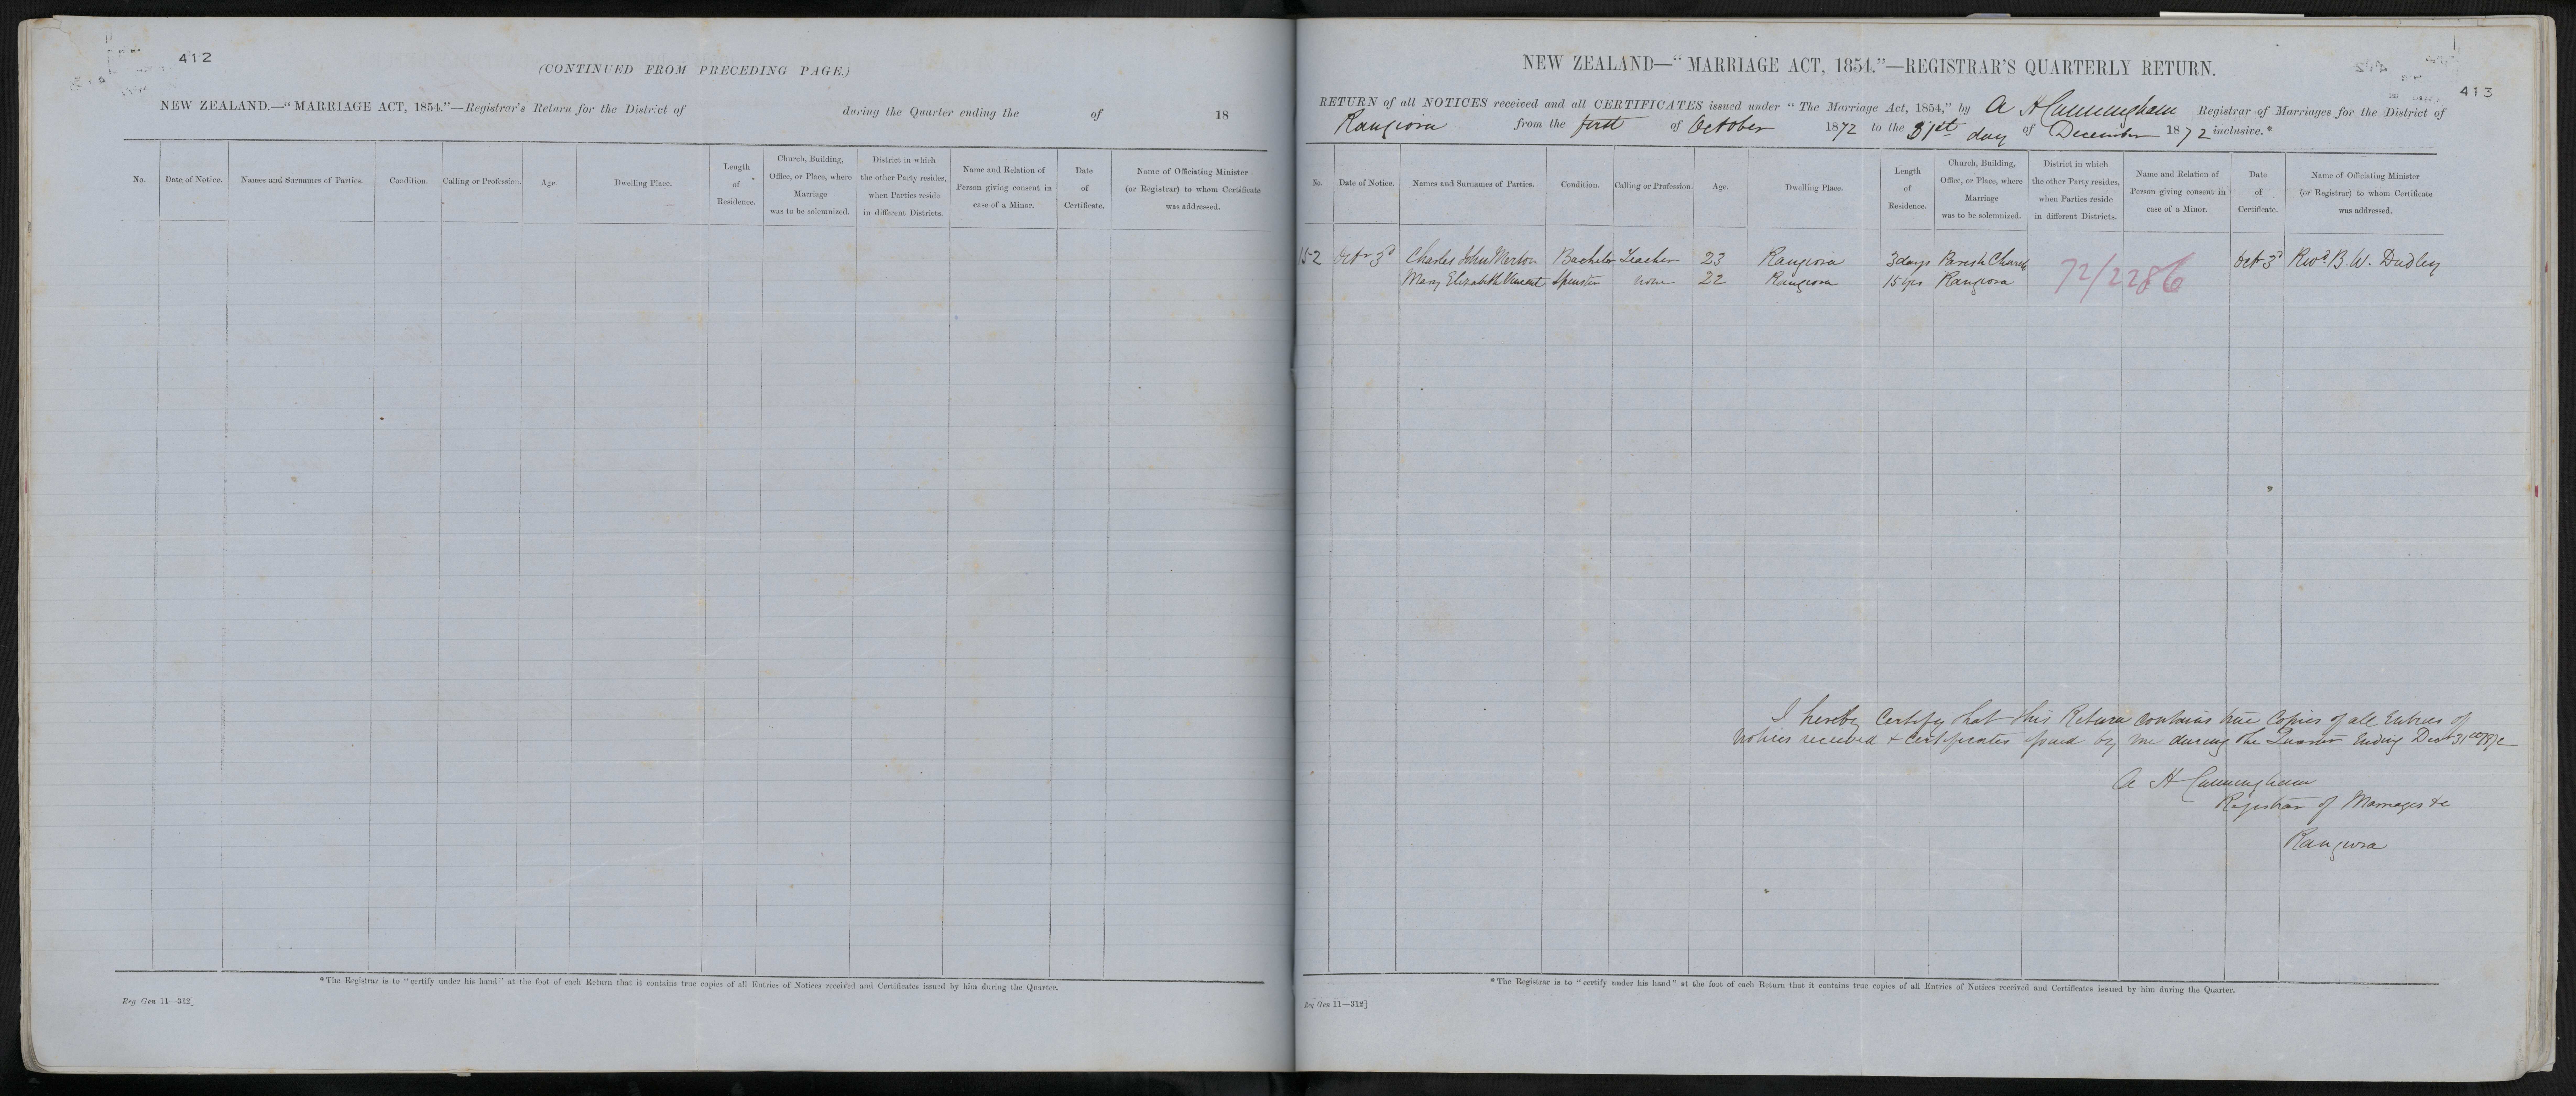 412
(CONTINUED FROM PRECEDING PAGE.)
NEW ZEALAND.—"MARRIAGE ACT, 1854."—Registrar's Return for the District of during the Quarter ending the of 18
No. Date of Notice. Names and Surnames of Parties. Condition. Calling or Profession. Age. Dwelling Place. Length of Residence. Church, Building, Office, or Place, where Marriage was to be solemnized. District in which the other Party resides, when Parties reside in different Districts. Name and Relation of Person giving consent in case of a Minor. Date of Certificate. Name of Officiating Minister (or Registrar) to whom Certificate was addressed.
*The Registrar is to "certify under his hand" at the foot of each Return that it contains true copies of all Entries of Notices received and Certificates issued by him during the Quarter.
Reg Gen 11—312]
413
NEW ZEALAND—"MARRIAGE ACT, 1854."—REGISTRAR'S QUARTERLY RETURN.
RETURN of all NOTICES received and all CERTIFICATES issued under "The Marriage Act, 1854," by A H Cunningham Registrar of Marriages for the District of
Rangiora from the first of October 1872 to the 31st day of December 1872 inclusive.*
No. Date of Notice. Names and Surnames of Parties. Condition. Calling or Profession. Age. Dwelling Place. Length of Residence. Church, Building, Office, or Place, where Marriage was to be solemnized. District in which the other Party resides, when Parties reside in different Districts. Name and Relation of Person giving consent in case of a Minor. Date of Certificate. Name of Officiating Minister (or Registrar) to whom Certificate was addressed.
152 Octr 3d Charles John Merton Bachelor Teacher 23 Rangiora 3 days Parish Church Oct 3d Revd. B. W. Dudley
Mary Elizabeth Vincent Spinster none 22 Rangiora 15 yrs Rangiora 72/2286
I hereby Certify that this Return contains true Copies of all Entries of
Notices received + Certificates issued by me during the Quarter Ending Decr 31st 1872
A H Cunningham
Registrar of Marriages &c
Rangiora
*The Registrar is to "certify under his hand" at the foot of each Return that it contains true copies of all Entries of Notices received and Certificates issued by him during the Quarter.
Reg Gen 11—312]